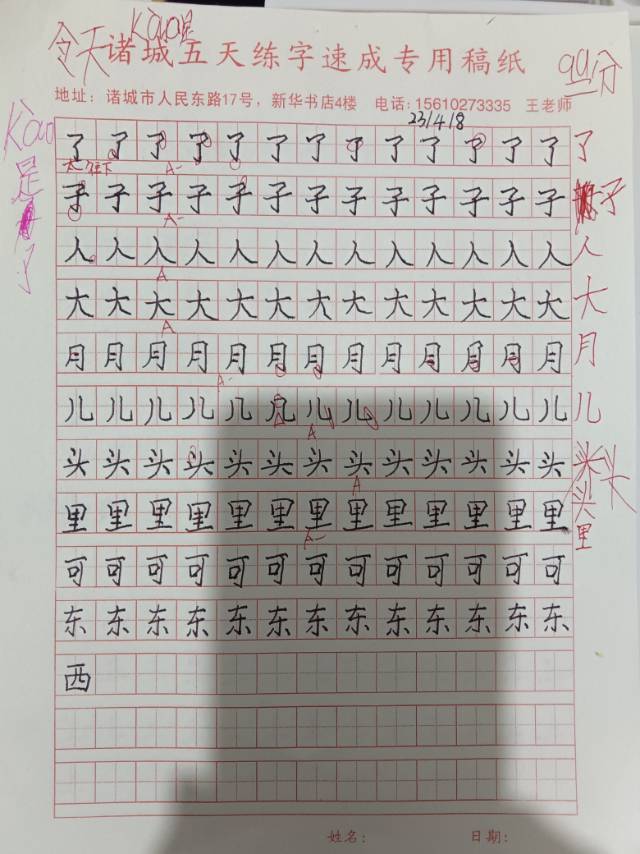 Kao是
今天 99分
诸城五天练字速成专用稿纸
地址：诸城市人民东路17号，新华书店4楼 电话：15610273335 王老师
23/4/8
Kao是
了了了了了了了了了了了了了 了
往下
A-
子子子子子子子子子子子子子 子
A-
人人人人人人人人人人人人人 人
A
大大大大大大大大大大大大大 大
A
月月月月月月月月月月月月月 月
A-
儿儿儿儿儿儿儿儿儿儿儿儿儿 儿
A
头头头头头头头头头头头头头 头头
A
头
里里里里里里里里里里里里里 里
A-
可可可可可可可可可可可可可
东东东东东东东东东东东东东
西
姓名： 日期：